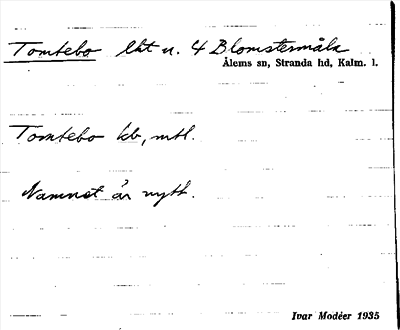 Tomtebo lht u. 4 Blomstermåla
Ålems sn, Stranda hd, Kalm. l.
Tomtebo kb, mtl.
Namnet är nytt.
Ivar Modéer 1935